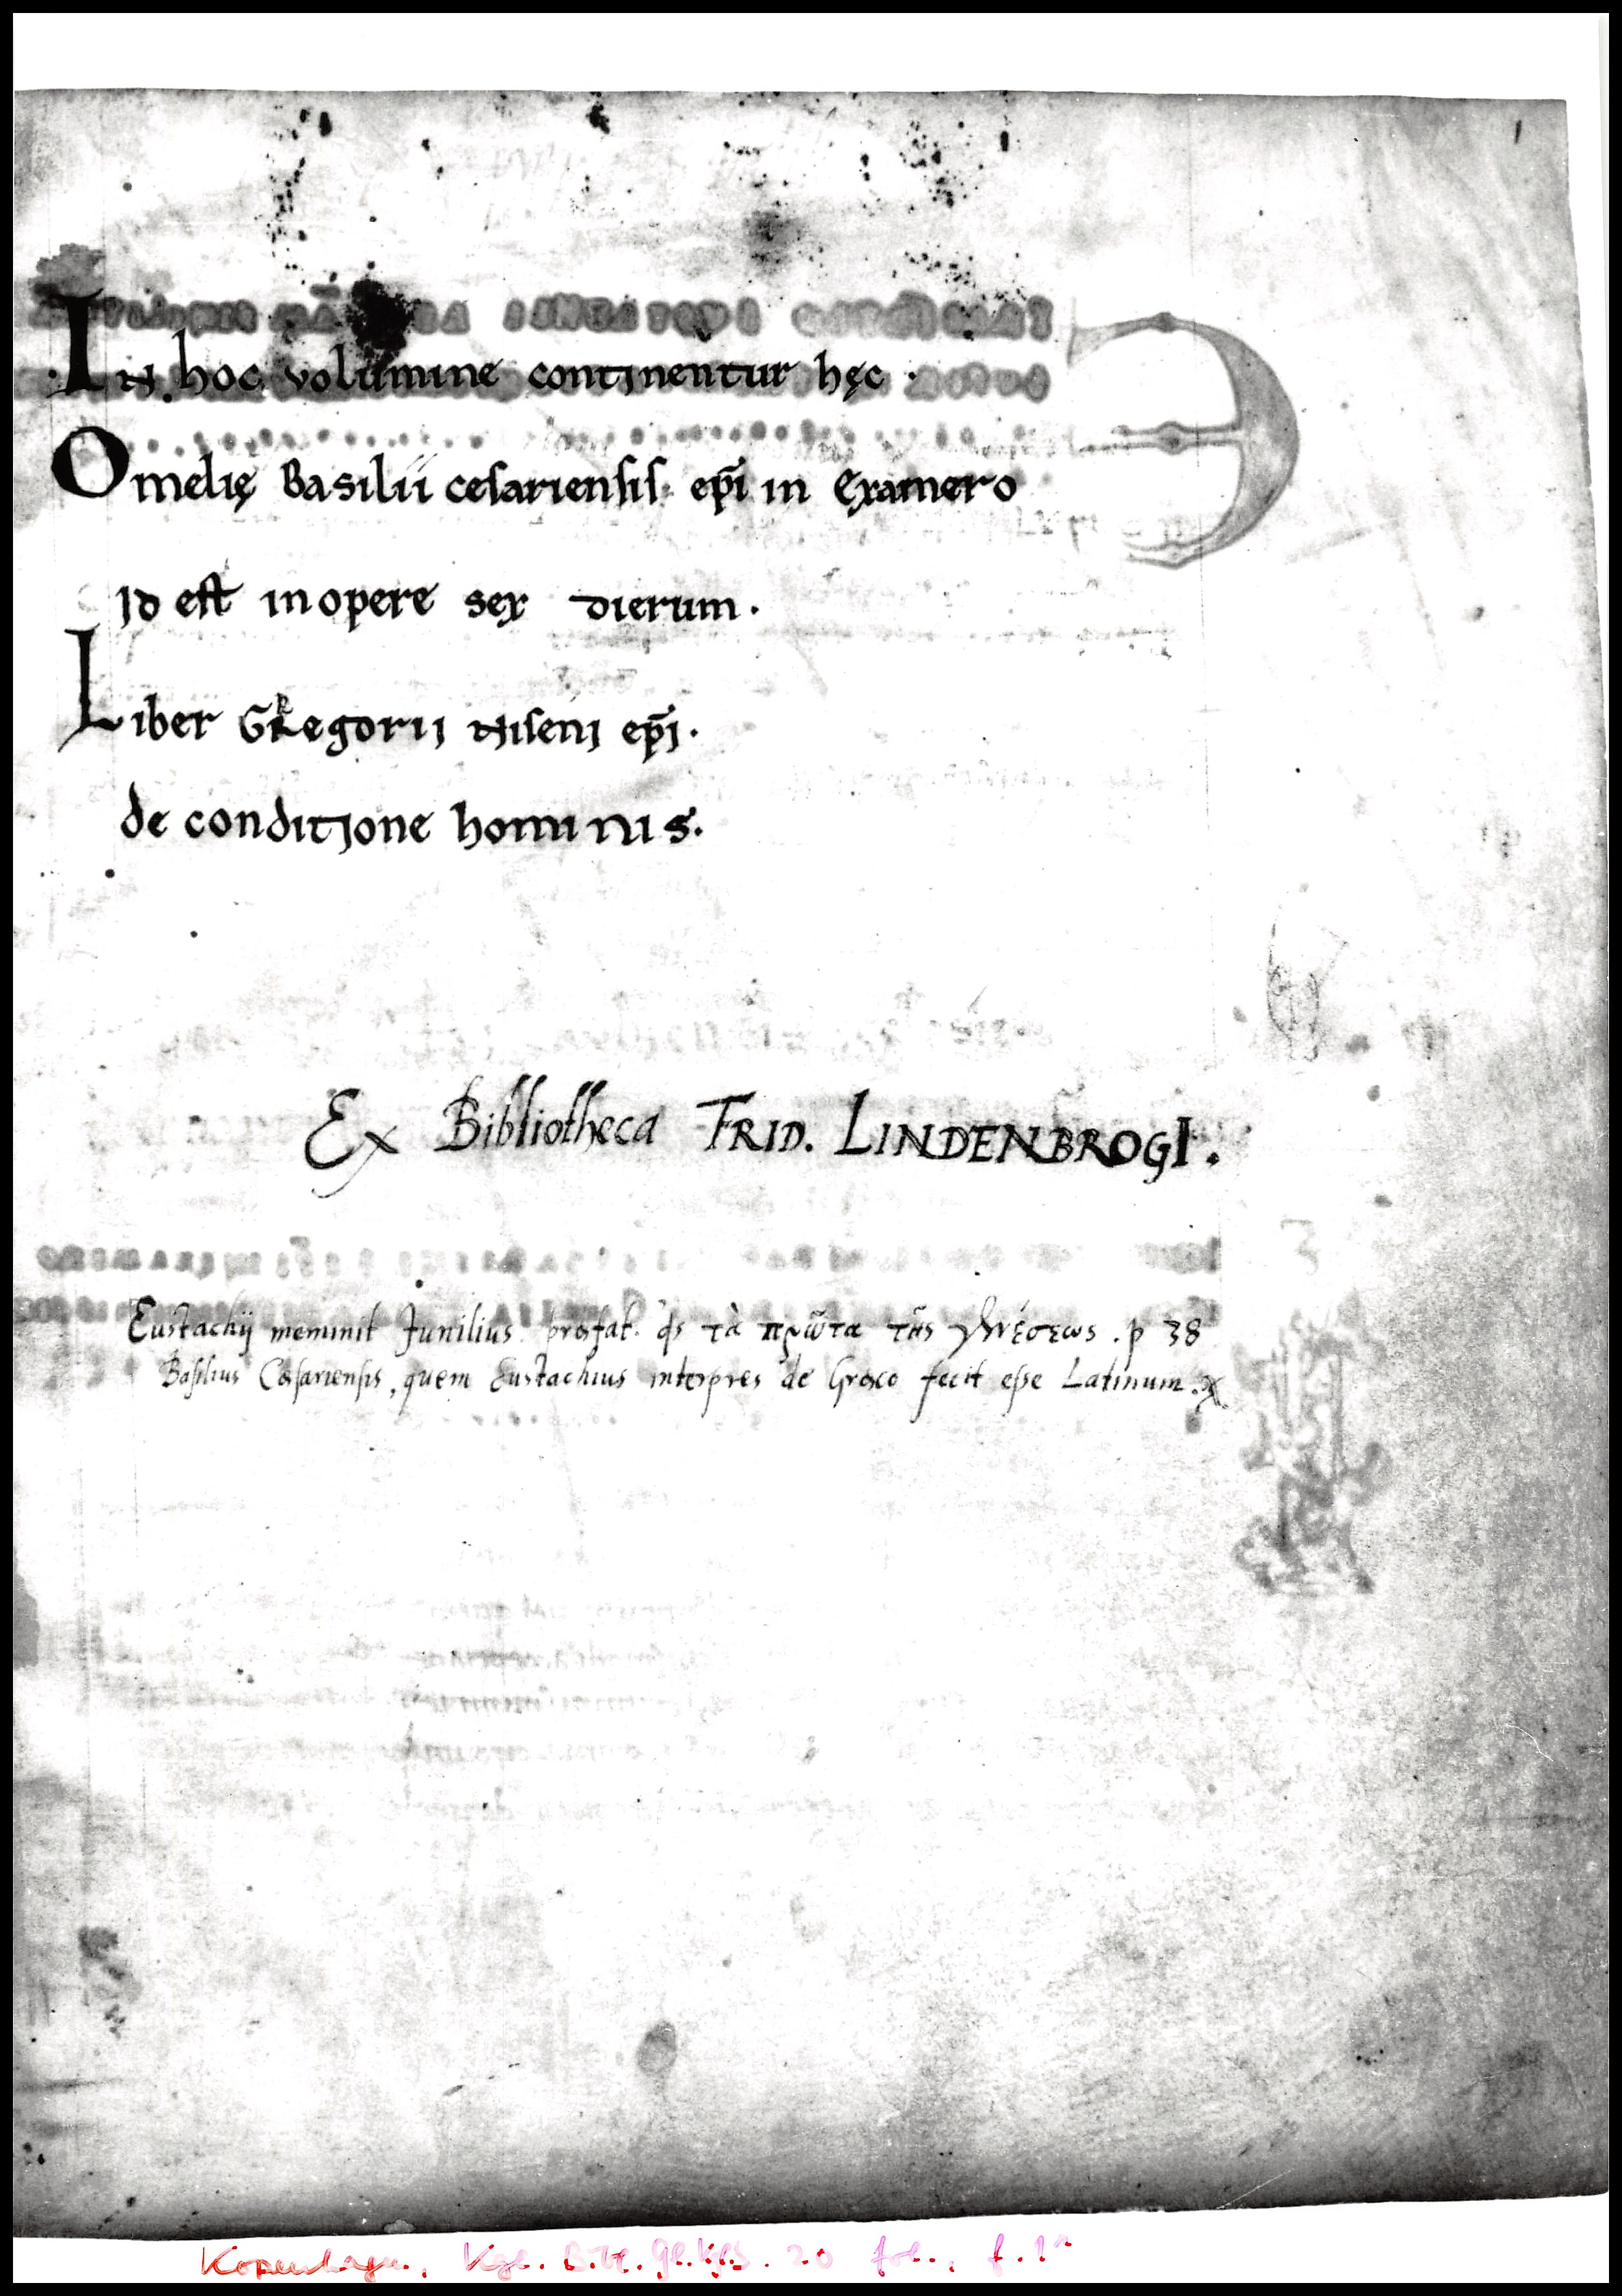 1
In hoc volumine continentur hęc .
Omelię Basilii cesariensis ep̄i in Examero
id est in opere sex dierum .
Liber Gregorii Niseni ep̄i .
de conditione hominis .
Ex Bibliotheca FRID. LINDENBROGI .
Eustachij meminit Junilius præfat. τὰ πρῶτα τῆς γενέσεως . p 38
Basilius Cæsariensis , quem Eustachius interpres de Græco fecit esse Latinum .
Kopenhagen, Kgl. Bibl. Gl. kgl. S. 20 fol., f. 1r